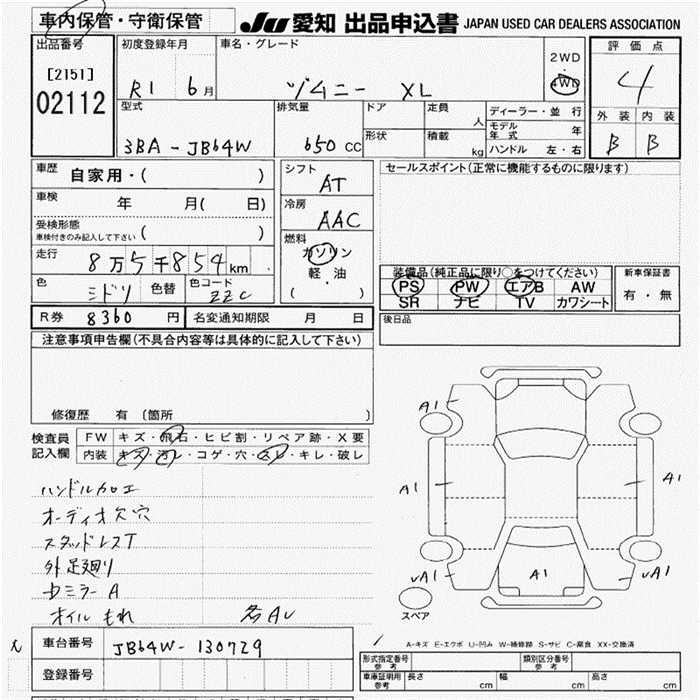 車内保管・守衛保管
JU 愛知 出品申込書 JAPAN USED CAR DEALERS ASSOCIATION
出品番号
[2151]
02112
初度登録年月
R1 6月
車名・グレード
ジムニー XL
2WD
・
4WD
評価点
4
外装 内装
B B
型式
3BA-JB64W
排気量
650 CC
ドア
形状
定員
人
積載
kg
ディーラー・並行
モデル年式 年
ハンドル 左・右
車歴
自家用・( )
車検
年 月( 日)
受検形態
車検付きのみ記入して下さい ( )
走行
8万5千854km
色
ミドリ
色替
色コード
ZZC
シフト
AT
冷房
AAC
燃料
ガソリン
軽・油
( )
セールスポイント(正常に機能するものに限ります)
装備品(純正品に限り○をつけてください)
PS PW エアB AW
SR ナビ TV カワシート
新車保証書
有・無
R券 8360 円 名変通知期限 月 日
後日品
注意事項申告欄(不具合内容等は具体的に記入して下さい)
修復歴 有 〔箇所 〕
検査員記入欄
FW キズ・飛石・ヒビ割・リペア跡・X要
内装 キズ・汚レ・コゲ・穴・スレ・キレ・破レ
ハンドルカコエ
オーディオ欠穴
スタッドレスT
外足廻り
中ミラーA
オイルもれ
各AU
A1
A1
A1
UA1
A1
UA1
スペア
A-キズ E-エクボ U-凹み W-補修跡 S-サビ C-腐食 XX-交換済
車台番号 JB64W-130729
登録番号
形式指定番号
参考
類別区分番号
参考
車庫証明用
参考
長さ cm
幅 cm
高さ cm